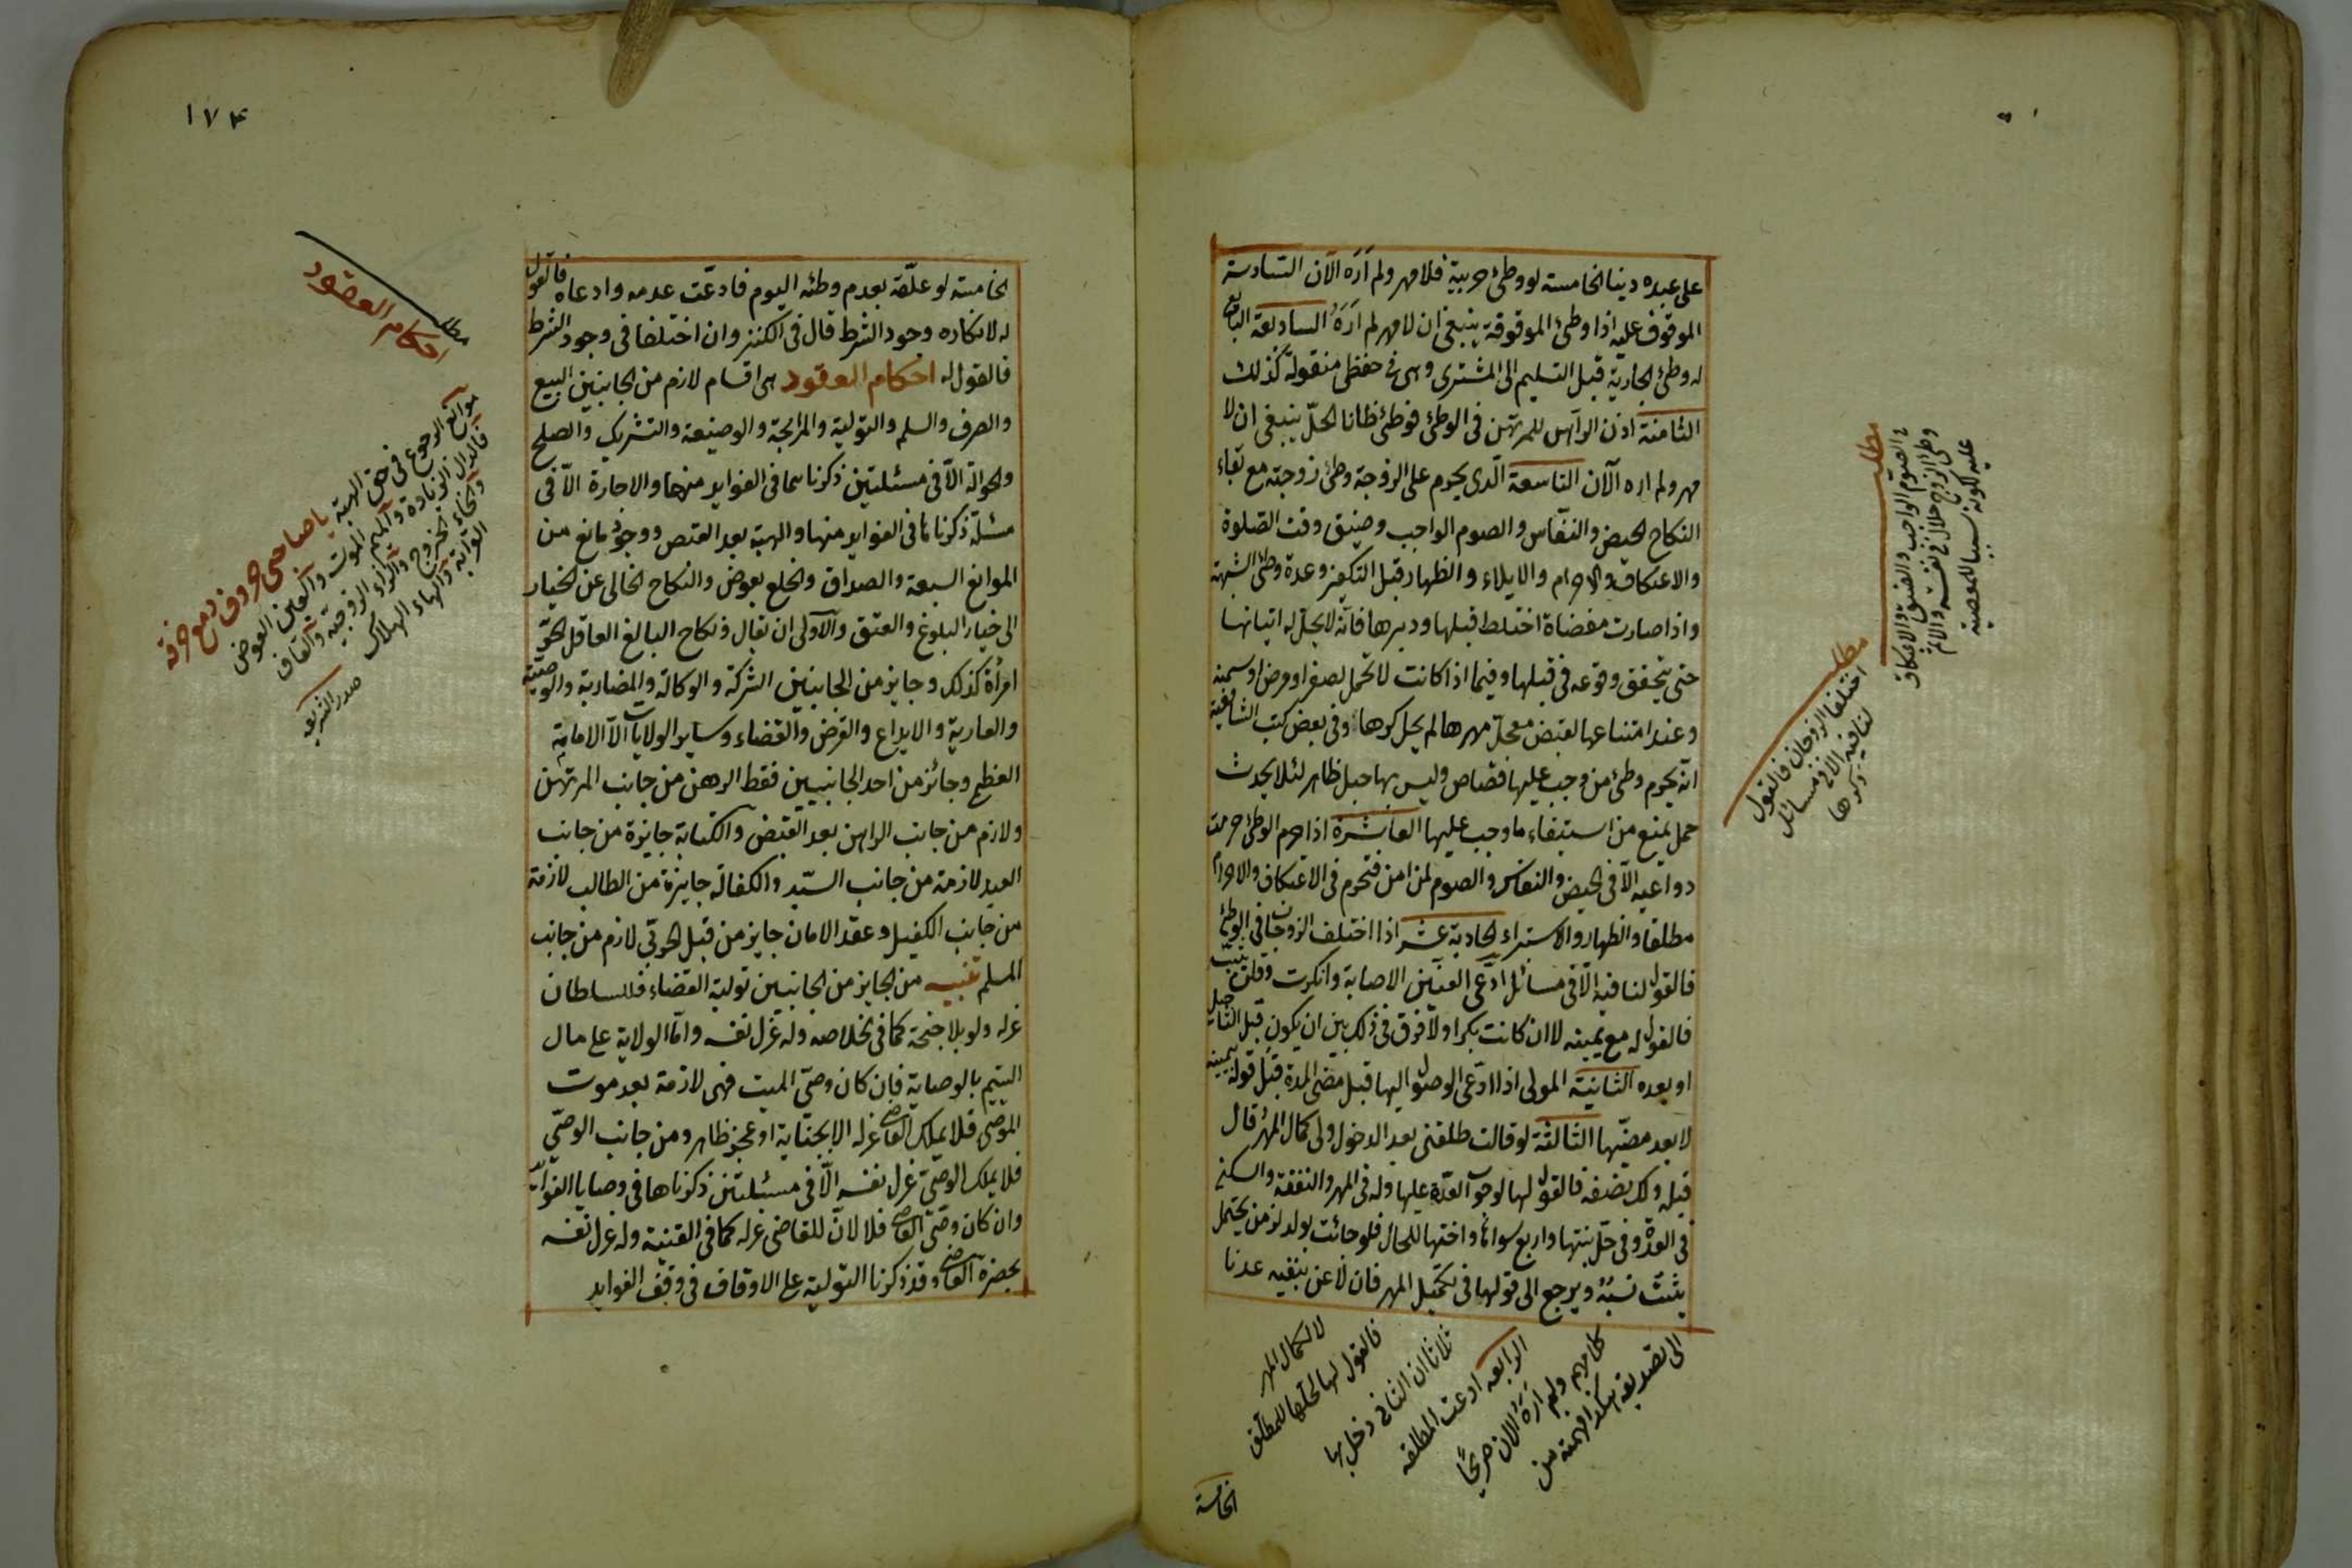 على عبده دينا الخامسة لو وطئ حربية فلا مهر ولم أره الآن السادسة
الموقوف عليه اذا وطئ الموقوفة ينبغي ان لا مهر لم أره السابعة البايع
له وطئ الجارية قبل التسليم الى المشتري وهي في حفظي منقولة كذلك
الثامنة اذن الراهن للمرتهن في الوطئ فوطئ ظانا الحل ينبغي ان لا
مهر ولم اره الآن التاسعة الذي يحرم على الزوجة وطئ زوجته مع بقاء
النكاح الحيض والنفاس والصوم الواجب وضيق وقت الصلوة
والاعتكاف والاحرام والايلاء والظهار قبل التكفير وعدة وطئ الشبهة
واذا صارت مفضاة اختلط قبلها ودبرها فانه لا يحل له اتيانها
حتى يتحقق وقوعه في قبلها وفيما اذا كانت لا تحمل لصغر او مرض او سمنة
وعند امتناعها لقبض معجل مهرها لم يحل كرها وفي بعض كتب الشافعية
انه يحرم وطئ من وجب عليها قصاص وليس بها حبل ظاهر لئلا يحدث
حمل يمنع من استيفاء ما وجب عليها العاشرة اذا حرم الوطئ حرمت
دواعيه الا في الحيض والنفاس والصوم لمن امن فتحرم في الاعتكاف والاحرام
مطلقا والظهار والاستبراء الحادية عشر اذا اختلف الزوجان في الوطئ
فالقول لنافيه الا في مسائل ادعى العنين الاصابة وانكرت وقلن ثيب
فالقول له مع يمينه لا ان كانت بكرا ولا فرق في ذلك بين ان يكون قبل التاجيل
او بعده الثانية المولى اذا ادعى الوصول اليها قبل مضي المدة قبل قوله بيمينه
لا بعد مضيها الثالثة لو قالت طلقتني بعد الدخول ولي كمال المهر قال
قبله ولك نصفه فالقول لها لوجوب العدة عليها وله في المهر والنفقة والسكنى
في العدة وفي حل بنتها واربع سواها واختها للحال فلو جائت بولد لزمن يحتمل
يثبت نسبه ويرجع الى قولها في تكميل المهر فان لاعن بنفيه عدنا
الى تصديقه هكذا فهمته من
كلامهم ولم أره الآن صريحا
الرابعة ادعت المطلقة
ثلاثا ان الثاني دخل بها
فالقول لها لحلها للمطلق
لا لكمال المهر
الخامسة
مطلب
في الصوم الواجب والضيق والاعتكاف
وطئ الزوج حلال في نفسه والاثم
عليه لكونه سببا للمعصية
مطلب
اختلفا الزوجان فالقول
لنافيه الا في مسائل
ذكرها
١٧٤
الخامسة لو علقه بعدم وطئه اليوم فادعت عدمه وادعاه فالقول
له لانكاره وجود الشرط قال في الكنز وان اختلفا في وجود الشرط
فالقول له احكام العقود هي اقسام لازم من الجانبين البيع
والصرف والسلم والتولية والمرابحة والوضيعة والتشريك والصلح
والحوالة الا في مسئلتين ذكرناهما في الفوايد منها والاجارة الا في
مسئلة ذكرناها في الفوايد منها والهبة بعد القبض ووجود مانع من
الموانع السبعة والصداق والخلع بعوض والنكاح الخالي عن الخيار
الى خيار البلوغ والعتق والاولى ان يقال ونكاح البالغ العاقل الحر
امرأة كذلك وجايز من الجانبين الشركة والوكالة والمضاربة والوصية
والعارية والايداع والقرض والقضاء وساير الولايات الا الامامة
العظمى وجائز من احد الجانبين فقط الرهن من جانب المرتهن
ولازم من جانب الراهن بعد القبض والكتابة جايزة من جانب
العبد لازمة من جانب السيد والكفالة جايزة من الطالب لازمة
من جانب الكفيل وعقد الامان جايز من قبل الحربي لازم من جانب
المسلم تنبيه من الجايز من الجانبين تولية القضاء فللسلطان
عزله ولو بلا جنحة كما في الخلاصة وله عزل نفسه واما الولاية على مال
اليتيم بالوصاية فان كان وصي الميت فهي لازمة بعد موت
الموصي فلا يملك القاضي عزله الا بجناية او عجز ظاهر ومن جانب الوصي
فلا يملك الوصي عزل نفسه الا في مسئلتين ذكرناها في وصايا الفوايد
وان كان وصي القاضي فلا لان للقاضي عزله كما في القنية وله عزل نفسه
بحضرة القاضي وقد ذكرنا التولية على الاوقاف في وقف الفوايد
مطلب
احكام العقود
موانع الرجوع في حق الهبة يا صاحبي حروف دمع خزقه
فالدال الزيادة والميم الموت والعين العوض
والخاء الخروج والزاء الزوجية والقاف
القرابة والهاء الهلاك
صدر الشريعه